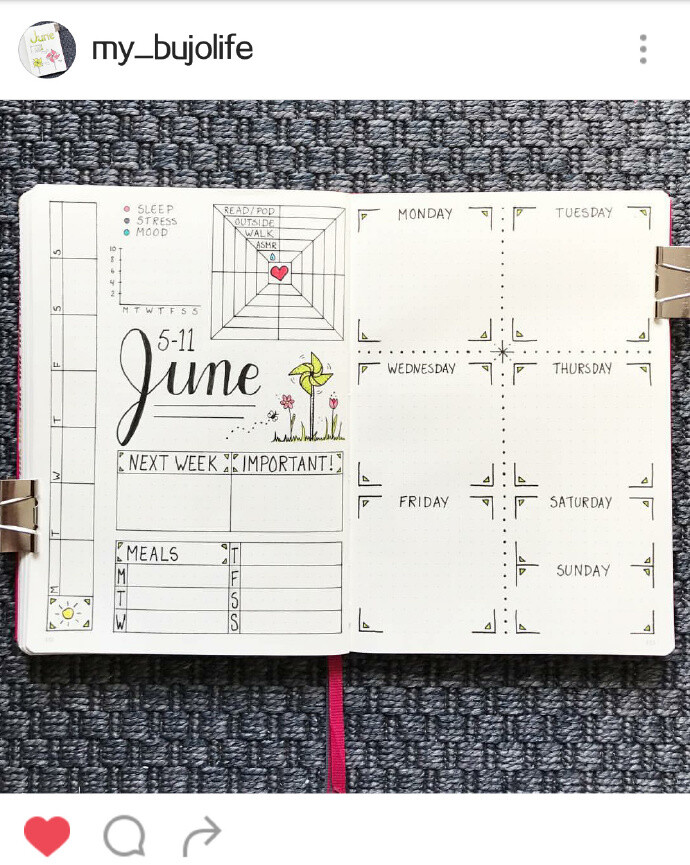 my_bujolife
S
S
F
T
W
T
M
SLEEP
STRESS
MOOD
10
8
6
4
2
M T W T F S S
READ/POD
OUTSIDE
WALK
ASMR
5-11
June
NEXT WEEK
IMPORTANT!
MEALS
M
T
W
T
F
S
S
MONDAY
TUESDAY
WEDNESDAY
THURSDAY
FRIDAY
SATURDAY
SUNDAY